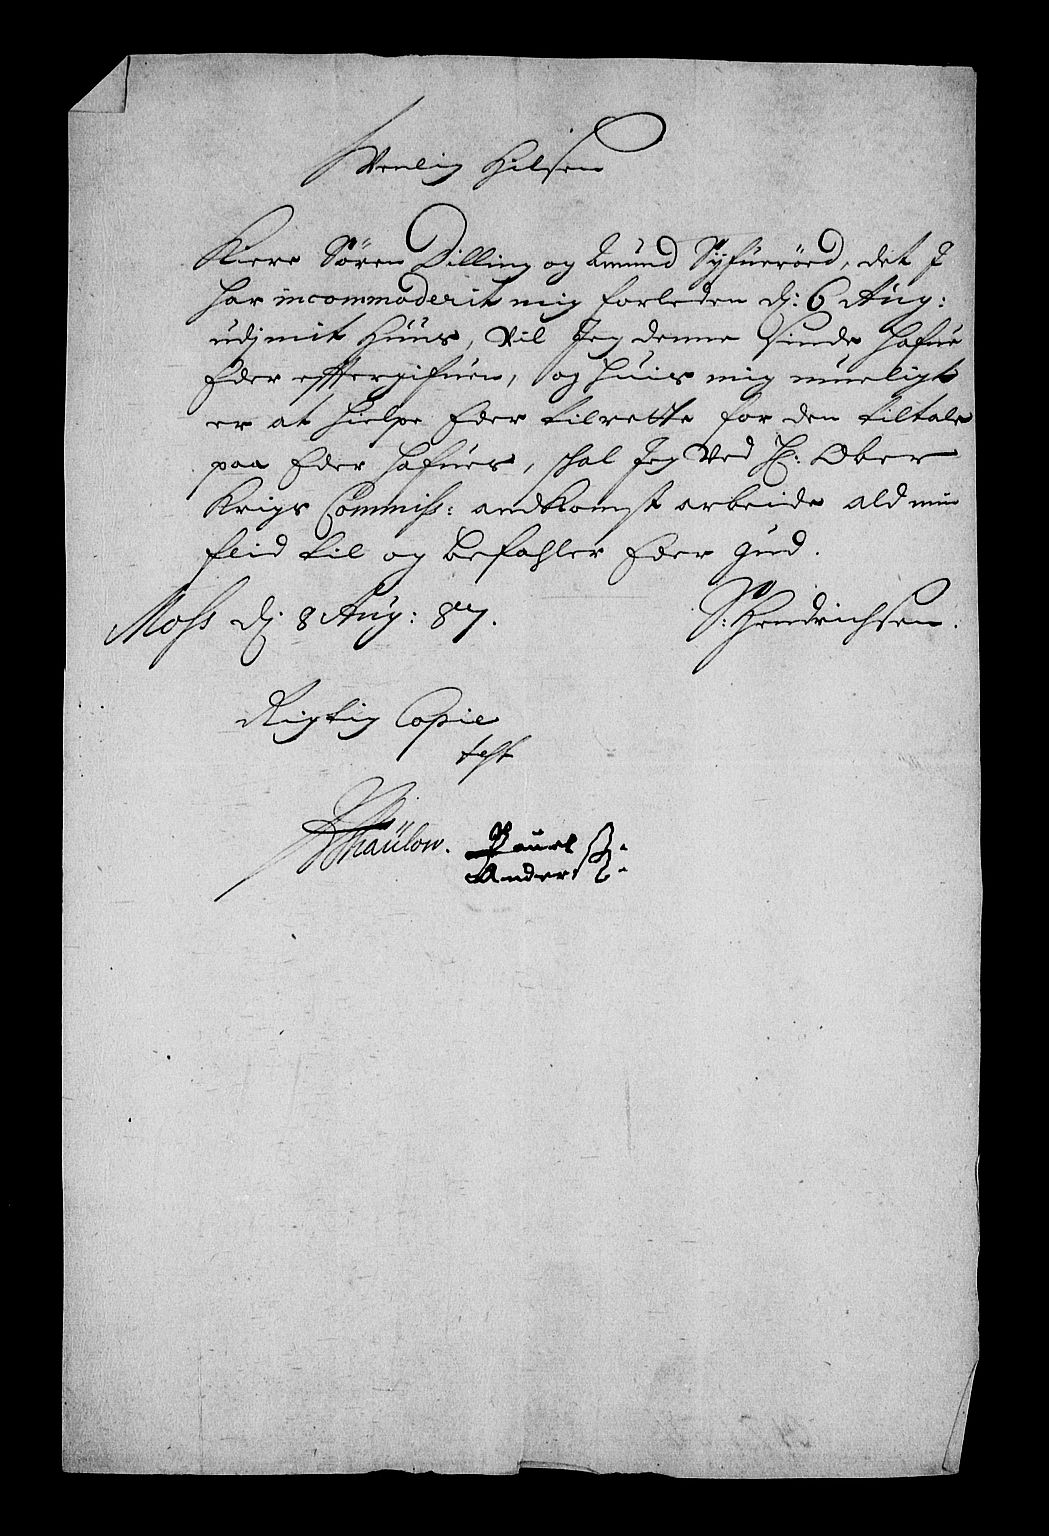 Venlig Hilsen
Kiere Søren Dilling og Amund Syfuerøed, det I
har incommoderit mig forleden d: 6 Aug:
udj mit Huus, vil Jeg denne Sinde hafue
Eder efftergifuen, og huis mig mueligt
er at hielpe Eder tilrette for den tiltale
paa Eder hafues, schal Jeg ved H: Ober
Krigs Commiss: andkomst arbeide ald min
flid til og befahler Eder Gud.
Moss d: 8 Aug: 87.
S: Hendrichsen.
Rigtig Copie
test
Thaülow.
Pouel
Anders: